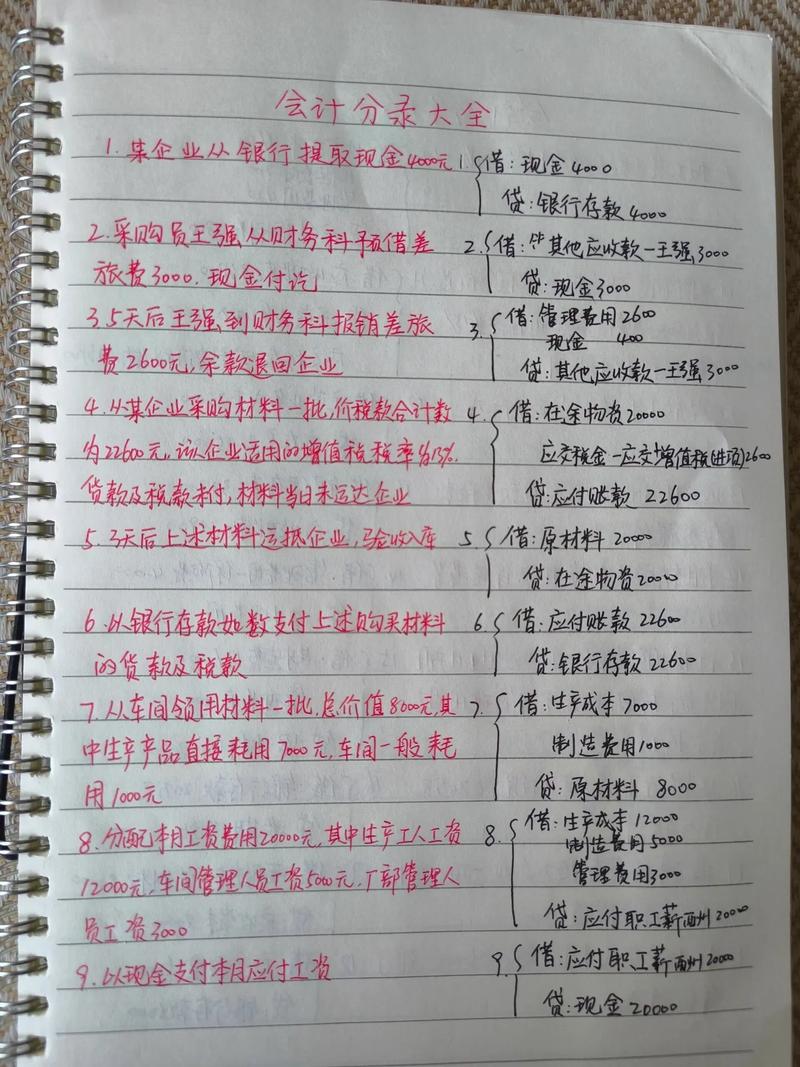 会计分录大全
1. 某企业从银行提取现金4000元
1. 借:现金4000
贷:银行存款4000
2. 采购员王强从财务科预借差
旅费3000.现金付讫
2. 借:其他应收款—王强3000
贷:现金3000
3. 5天后王强到财务科报销差旅
费2600元,余款退回企业
3. 借:管理费用2600
现金 400
贷:其他应收款—王强3000
4. 从某企业采购材料一批,价税款合计数
为22600元,该企业适用的增值税税率为13%.
货款及税款未付,材料当日未运达企业
4. 借:在途物资20000
应交税金—应交增值税(进项)2600
贷:应付账款 22600
5. 3天后上述材料运抵企业,验收入库
5. 借:原材料 20000
贷:在途物资20000
6. 以银行存款如数支付上述购买材料
的货款及税款
6. 借:应付账款 22600
贷:银行存款 22600
7. 从车间领用材料一批,总价值8000元,其
中生产产品直接耗用7000元,车间一般耗
用1000元
7. 借:生产成本 7000
制造费用1000
贷:原材料 8000
8. 分配本月工资费用20000元,其中生产工人工资
12000元,车间管理人员工资5000元,厂部管理人
员工资3000
8. 借:生产成本 12000
制造费用 5000
管理费用3000
贷:应付职工薪酬 20000
9. 以现金支付本月应付工资
9. 借:应付职工薪酬 20000
贷:现金 20000